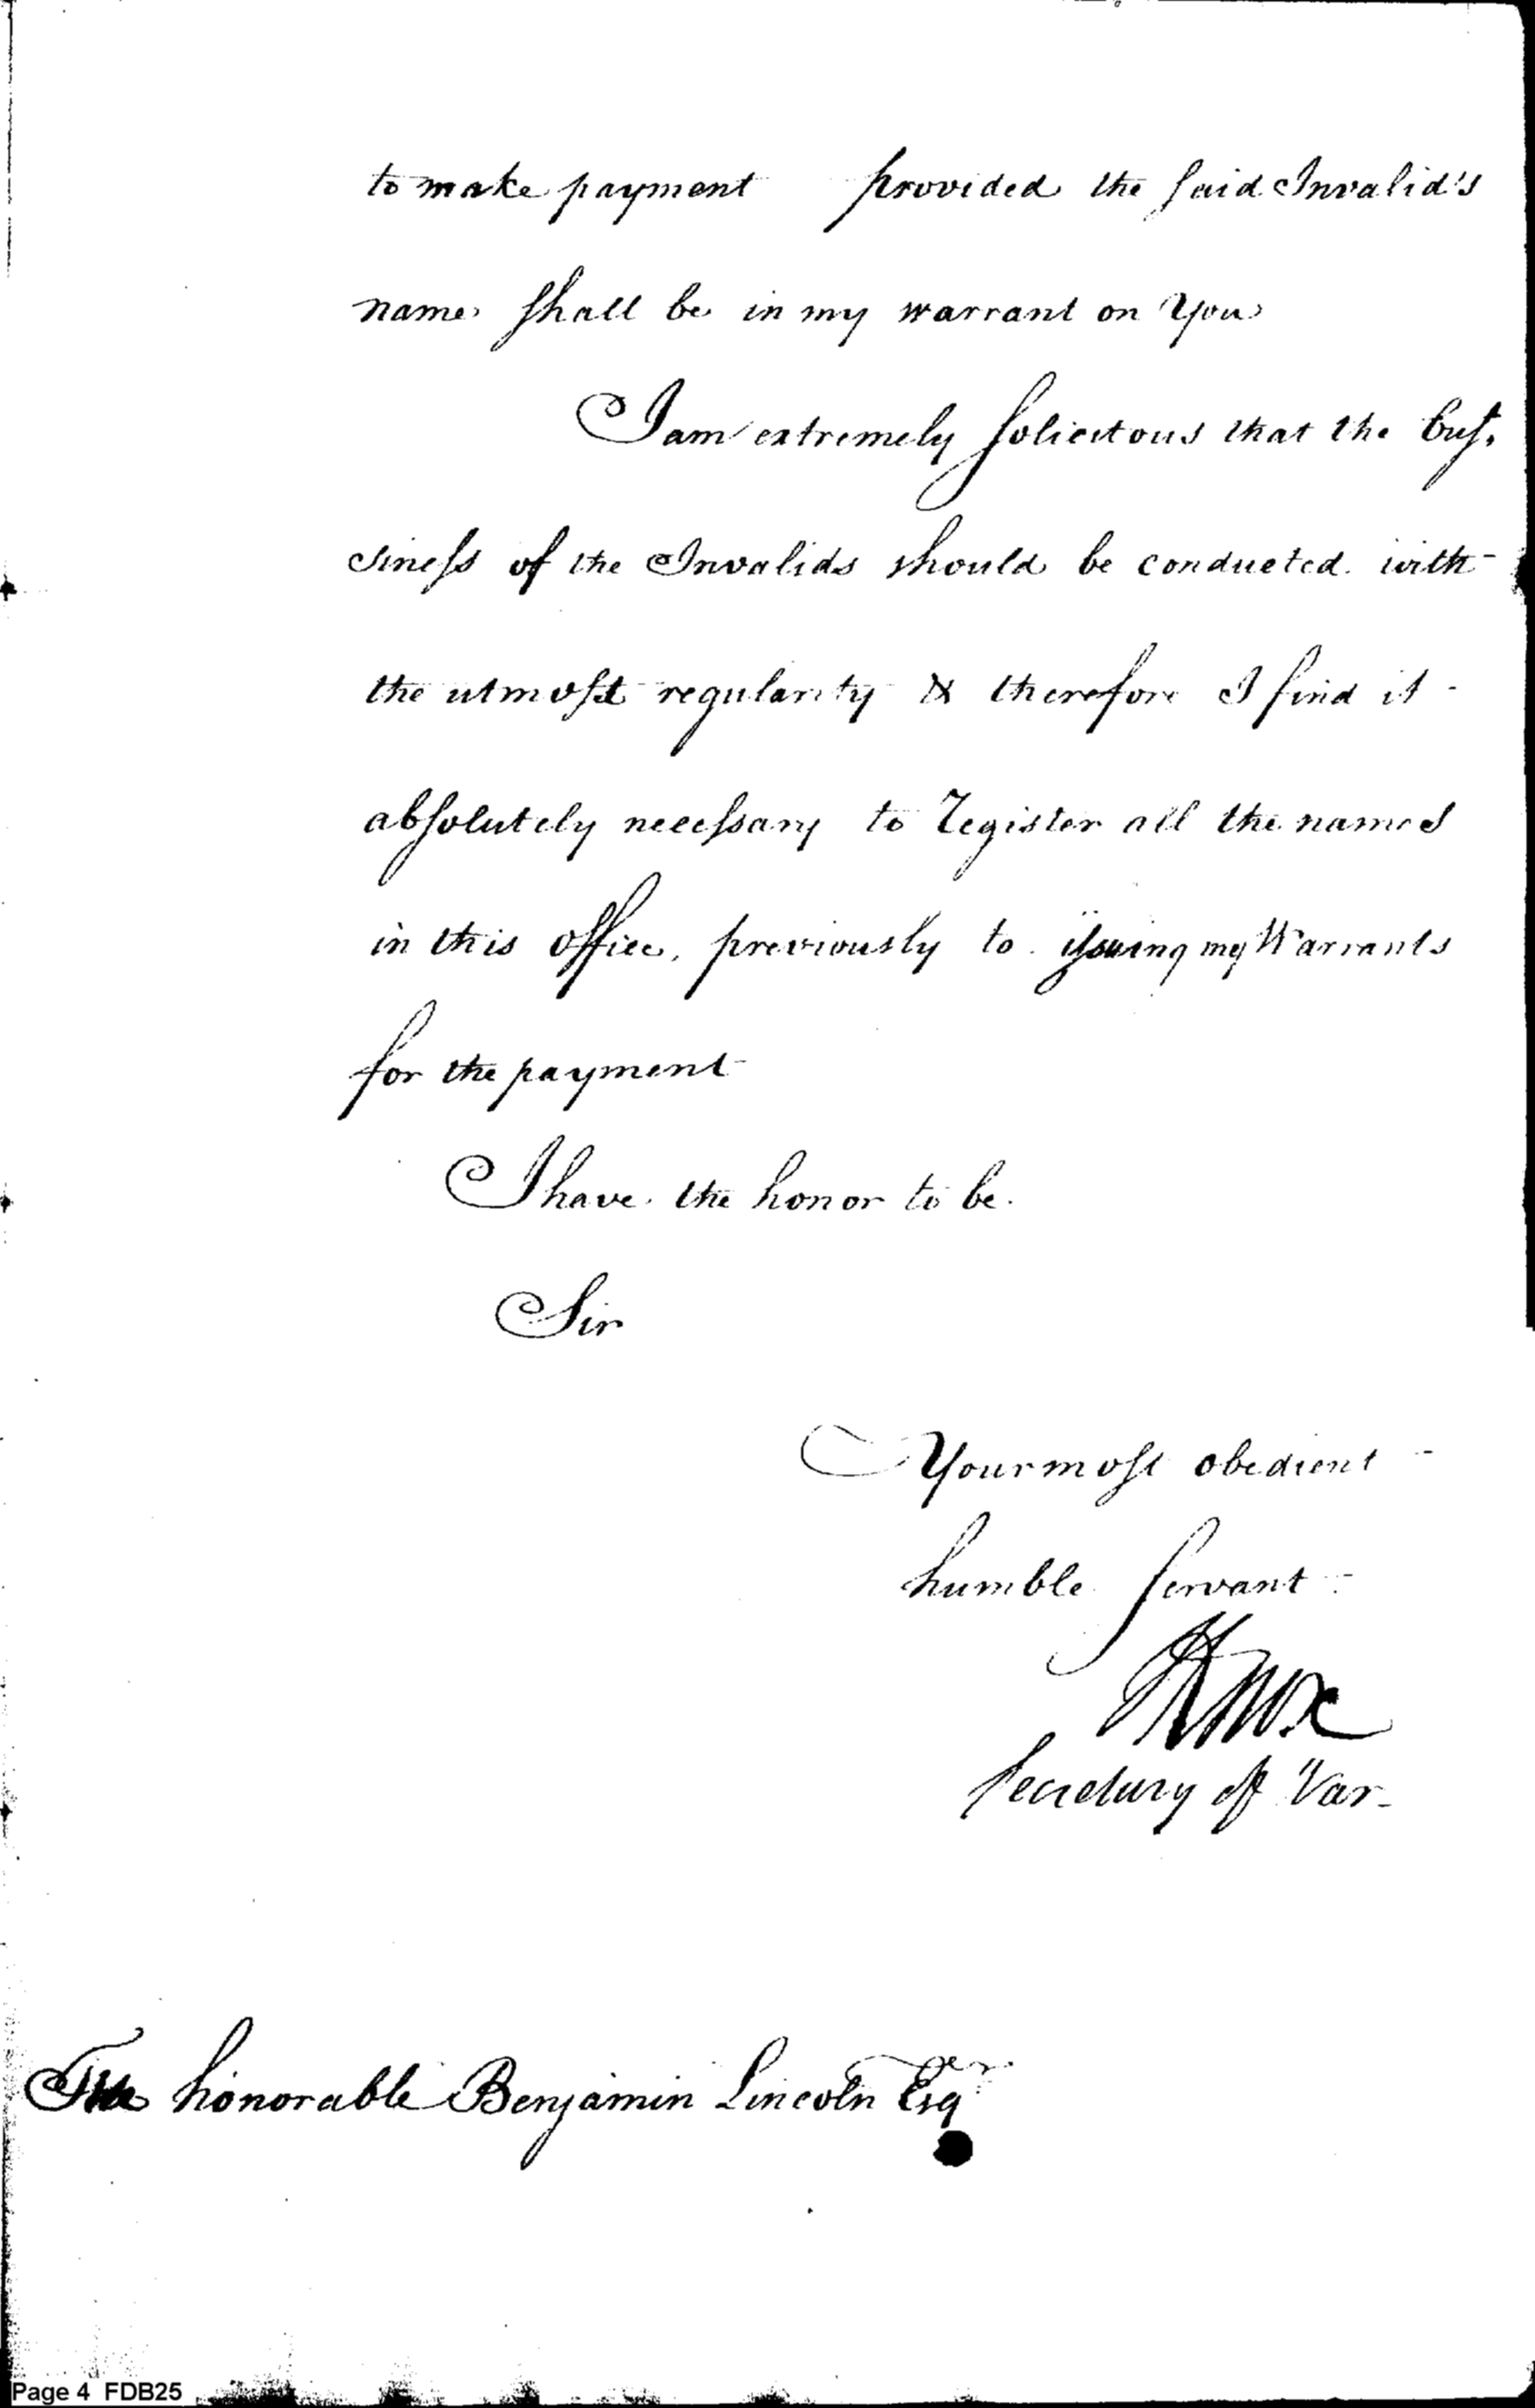 to make payment provided the said Invalid's
name shall be in my warrant on You
I am extremely solicitous that the bus,
siness of the Invalids should be conducted with
the utmost regularity & therefore I find it
absolutely necessary to Register all the names
in this office, previously to issuing my Warrants
for the payment
I have the honor to be
Sir
Your most obedient
humble servant
HKnox
Secretary of War
The honorable Benjamin Lincoln Esqr
Page 4 FDB25